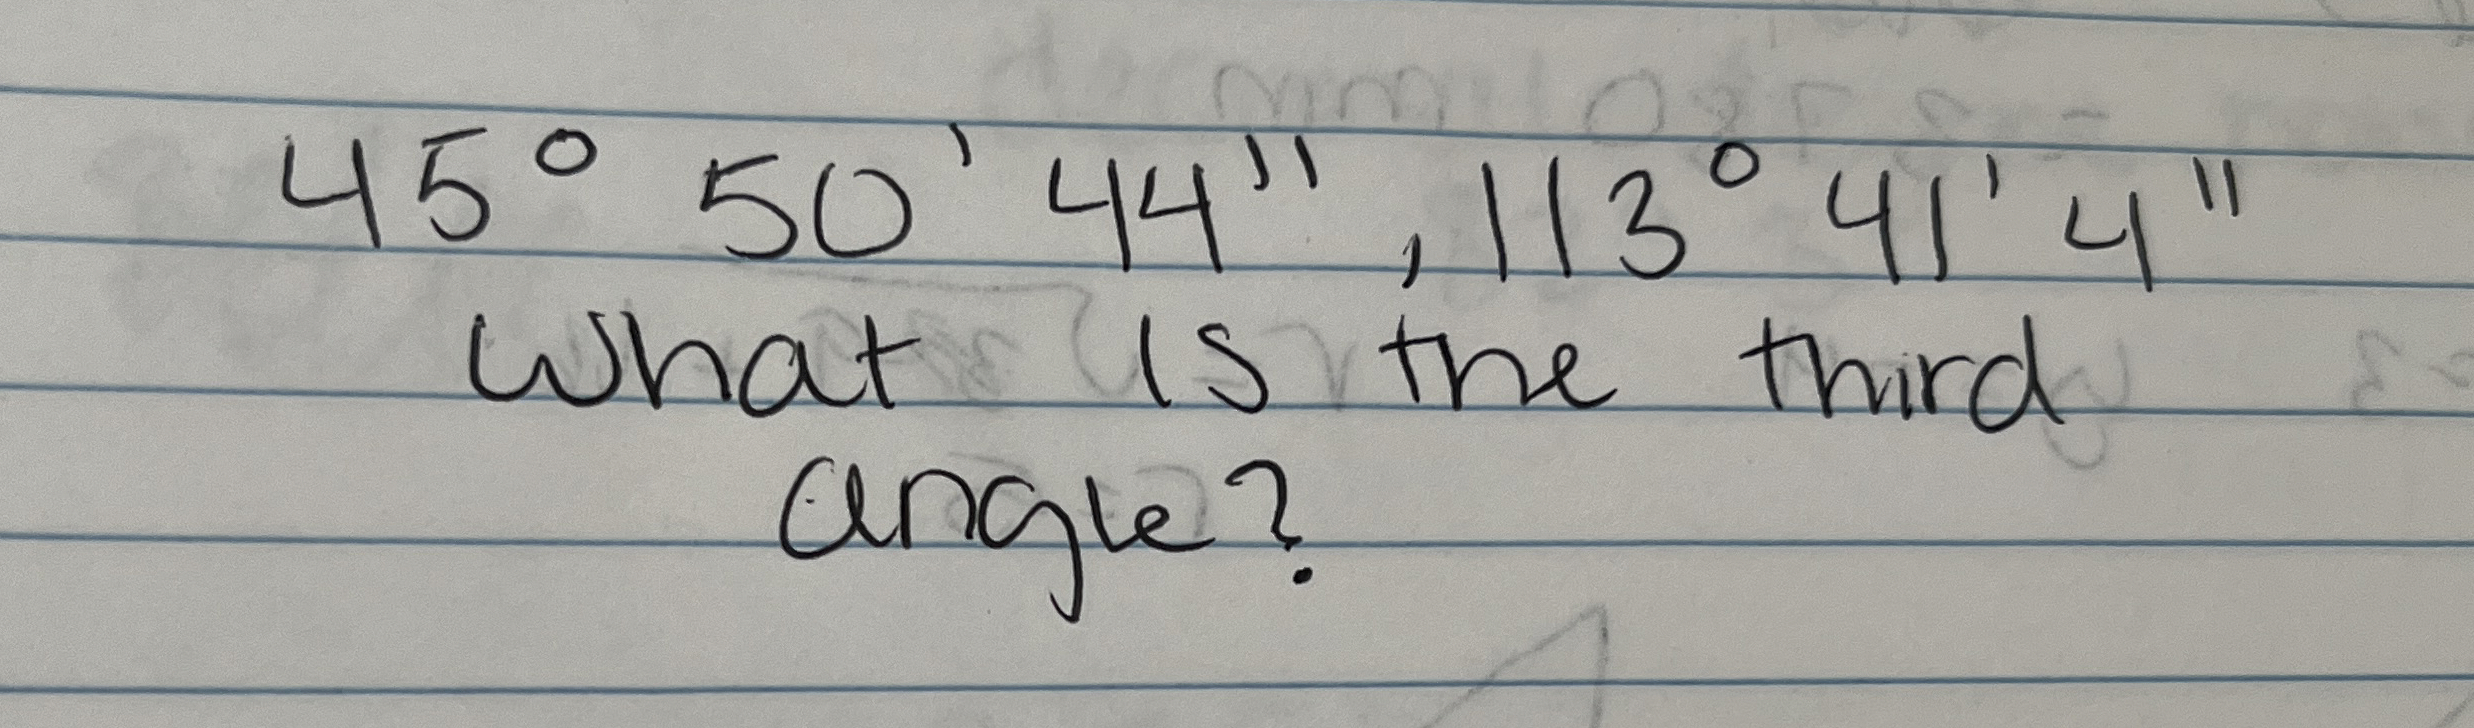 45° 50' 44", 113° 41' 4"
What is the third
angle?